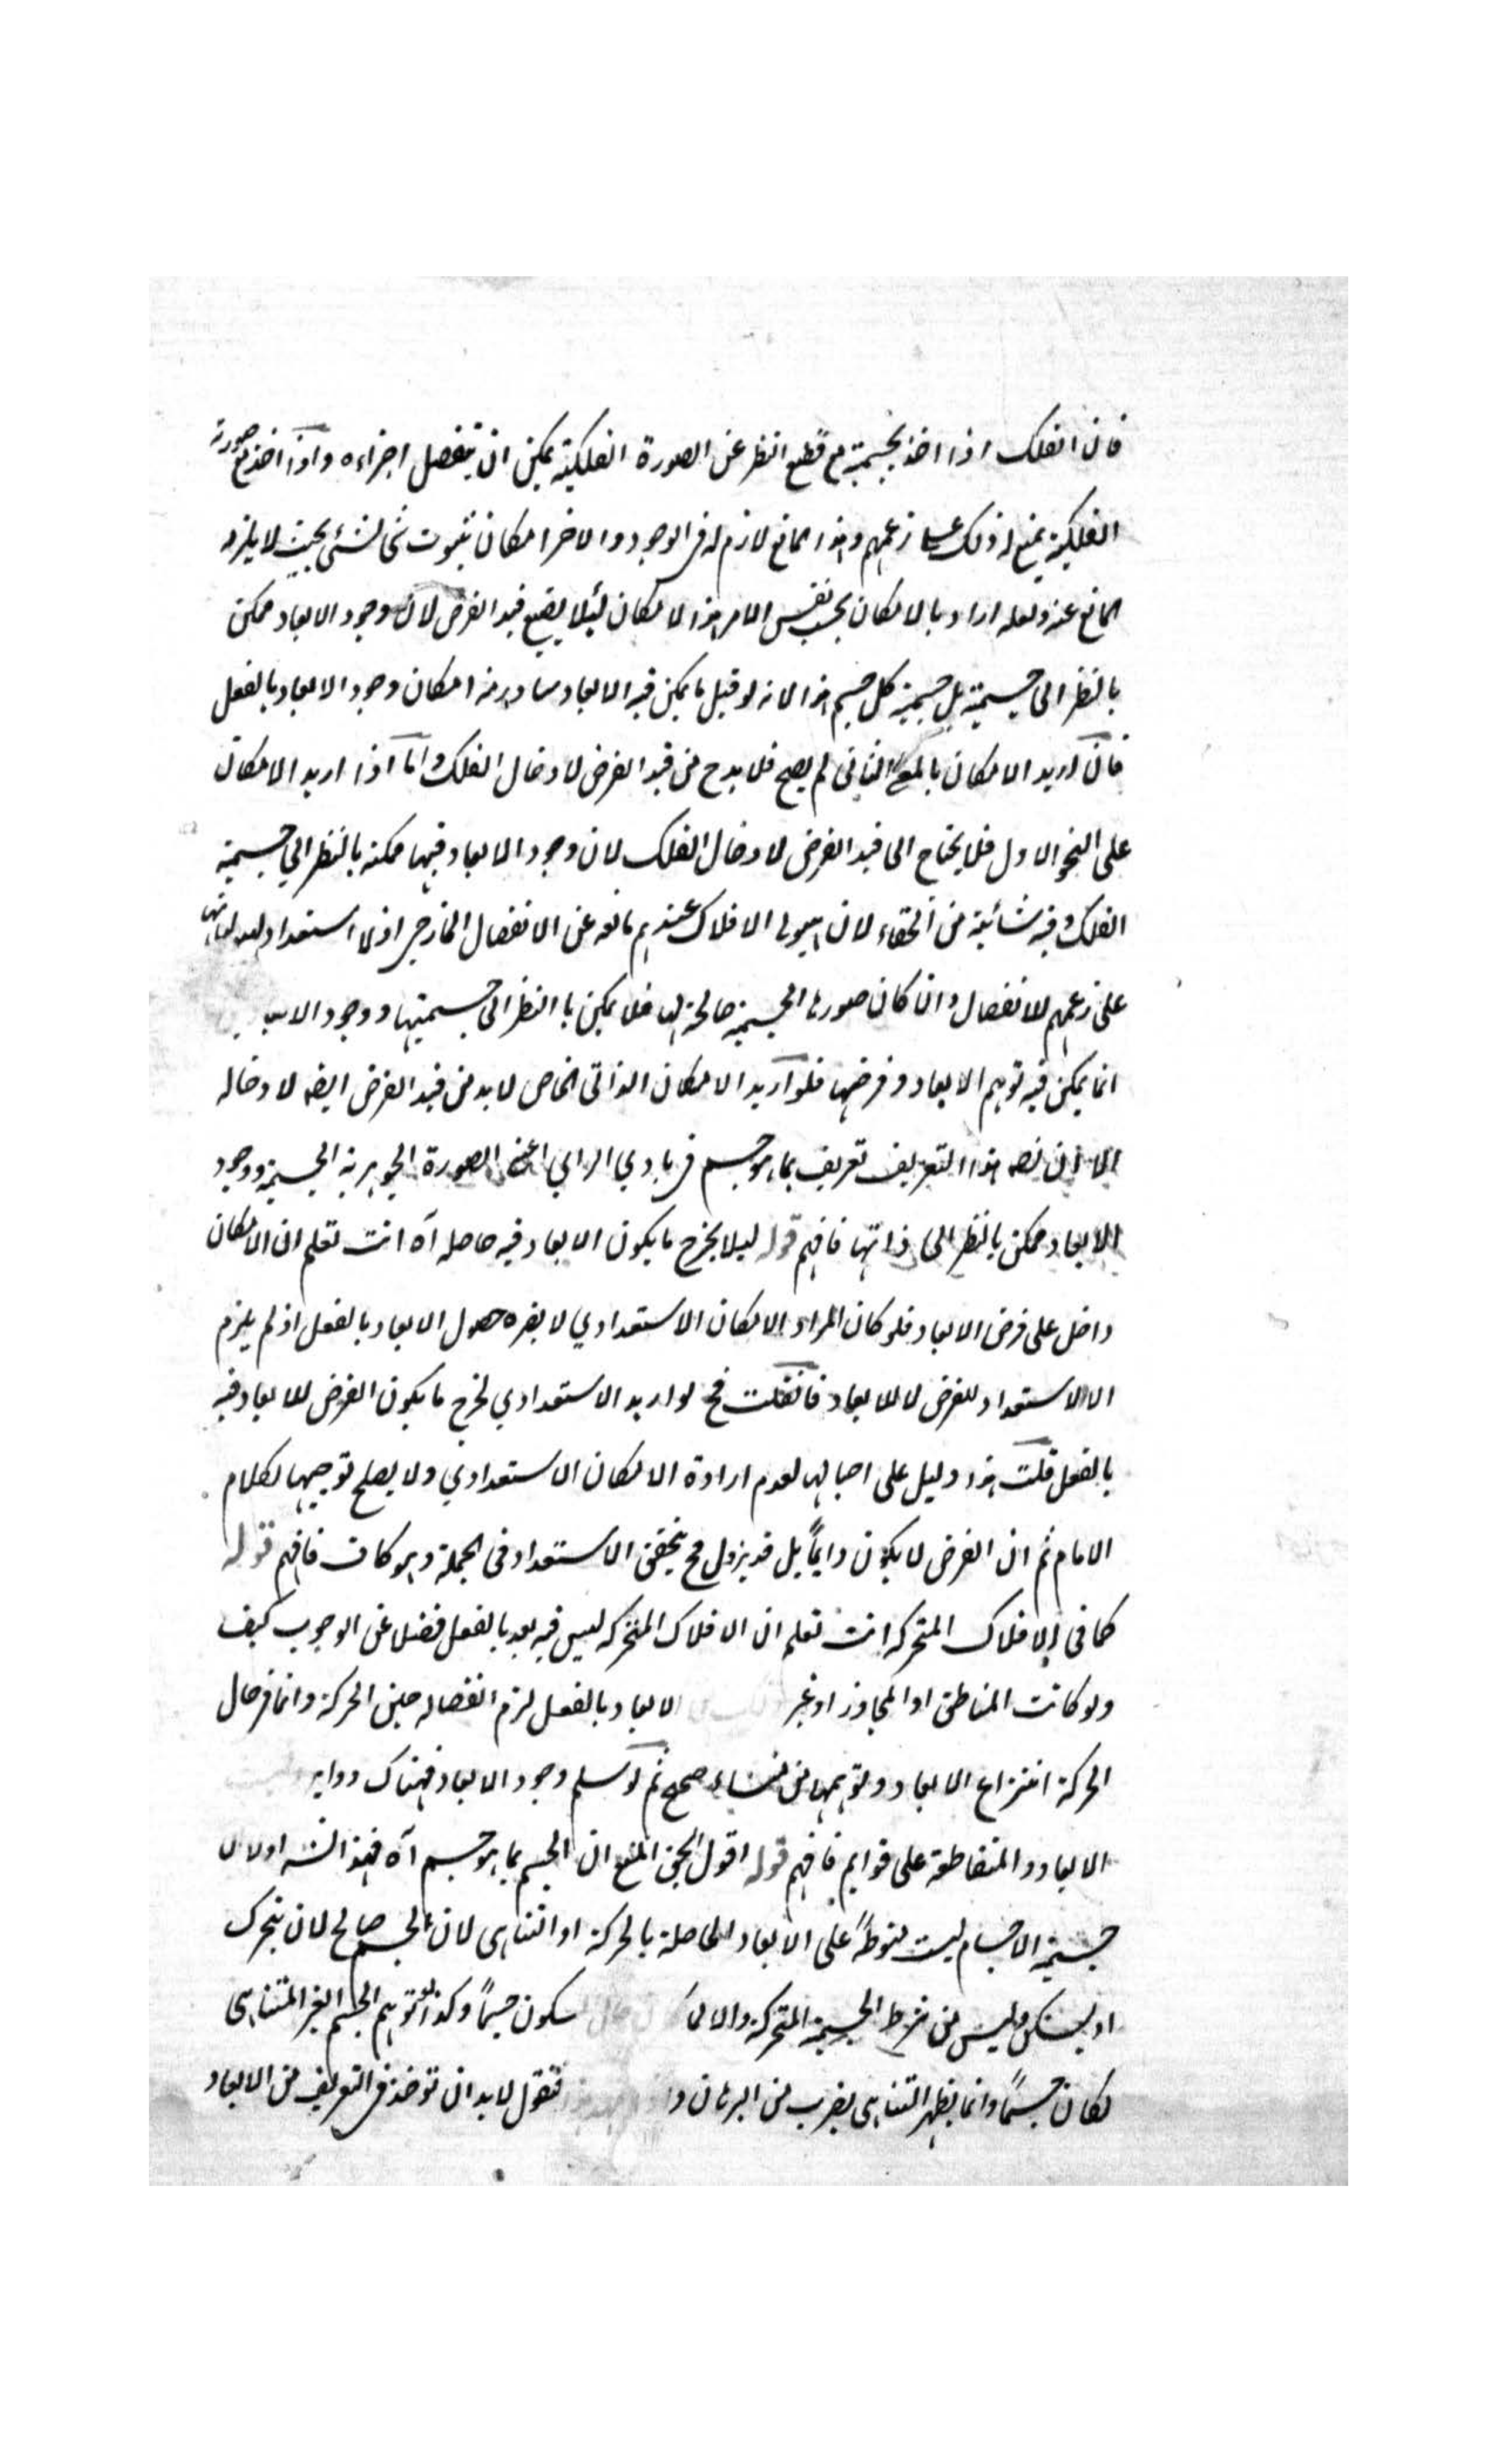 فان الفلك اذا اخذ بجسمية مع قطع النظر عن الصورة الفلكية يمكن ان ينفصل اجزاءه واذا اخذ مع صورته
الفلكية يمنع له ذلك على زعمهم وهذا المانع لازم له في الوجود والاخر امكان ثبوت شي لشئ بحيث لا يلزمه
المانع عنه ولعله اراد بالامكان بحسب نفس الامر هذا الامكان ليلا يضيع قيد الفرض لان وجود الابعاد ممكن
بالنظر الى جسمية بل جسمية كل جسم هذا لانه لو قيل ما يمكن فيه الابعاد متبادر منه امكان وجود الابعاد بالفعل
فان اريد الامكان بالمعنى الثاني لم يصح فلا بد ح من قيد الفرض لادخال الفلك واما اذا اريد الامكان
على النحو الاول فلا يحتاج الى قيد الفرض لادخال الفلك لان وجود الابعاد فيها ممكنة بالنظر الى جسمية
الفلك وفيه شائبة من الخفاء لان هيولى الافلاك عندهم مانعه عن الانفصال الخارجي اذ لا استعداد لهيولياتها
على زعمهم للانفصال وان كان صورها الجسمية صالحة لها فلا يمكن با النظر الى جسميتها ووجود
انما يمكن فيه توهم الابعاد وفرضها فلو اريد الامكان الذاتي الخاص لا بد من قيد الفرض ايضه لادخاله
الا ان نصه هذا التعريف تعريف بما هو جسم في بادي الراي اعني الصورة الجوهرية الجسمية ووجود
الابعاد ممكن بالنظر الى ذاتها فافهم قوله ليلا يخرج ما يكون الابعاد فيه حاصله اه انت تعلم ان الامكان
داخل على فرض الابعاد فلو كان المراد الامكان الاستعدادي لا يضره حصول الابعاد بالفعل اذ لم يلزم
الا الاستعداد للفرض لا للابعاد فان قلت فح لو اريد الاستعدادي لخرج ما يكون الفرض للابعاد فيه
بالفعل قلت هذا دليل على احبالها لعدم ارادة الامكان الاستعدادي ولا يصلح توجيها لكلام
الامام ثم ان الفرض لا يكون دايماً بل قد يزول فح يتحقق الاستعداد في الجملة وهو كاف فافهم قوله
كما في الافلاك المتحركة انت تعلم ان الافلاك المتحركه ليس فيه بعد بالفعل فضلا عن الوجوب كيف
ولو كانت المناطق او المحاور او غير الابعاد بالفعل لزم انفصاله حين الحركة وانما في حال
الحركة انتزاع الابعاد وتوهمها من منشاء صحيح ثم لو سلم وجود الابعاد فهناك
الابعاد والمتقاطعة على قوايم فافهم قوله اقول الحق المنع ان الجسم بما هو جسم اه فهذا اولا لان
جسمية الاجسام ليست منوطةً على الابعاد الحاصلة بالحركة او التناهي لان الجسم صالح لان يتحرك
او يسكن وليس من شرط الجسمية المتحركة والا سكون جسماً وكذا لو توهم الجسم الغير المتناهي
لكان جسماً وانما يظهر التناهي بضرب من البرهان فنقول لا بد ان توخذ في التعريف من الابعاد